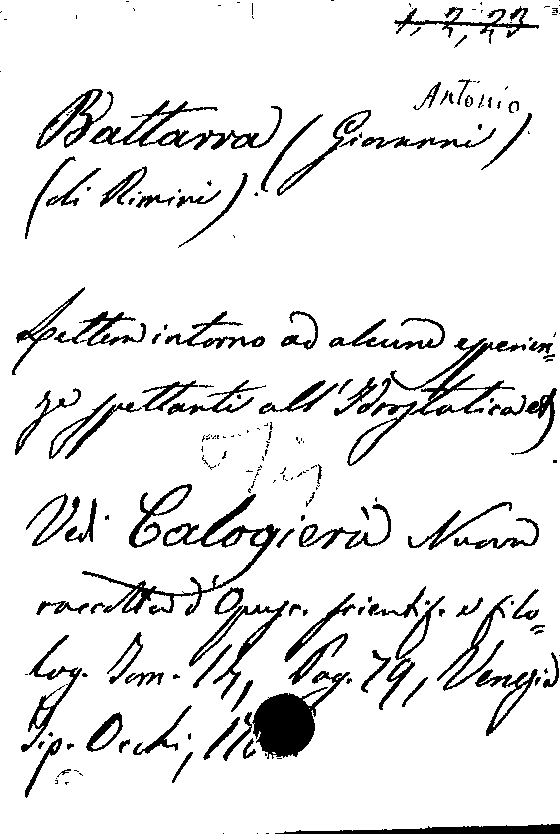 1, 2, 23
Antonio
Battarra (Giovanni)
(di Rimini).
Lettera intorno ad alcune esperien=
ze spettanti all'Idrostatica
Fis
Vedi Calogierà Nuova
raccolta d'Opusc. scientif. e filo=
log. Tom. 14, Pag. 79, Venezia
Tip. Occhi,